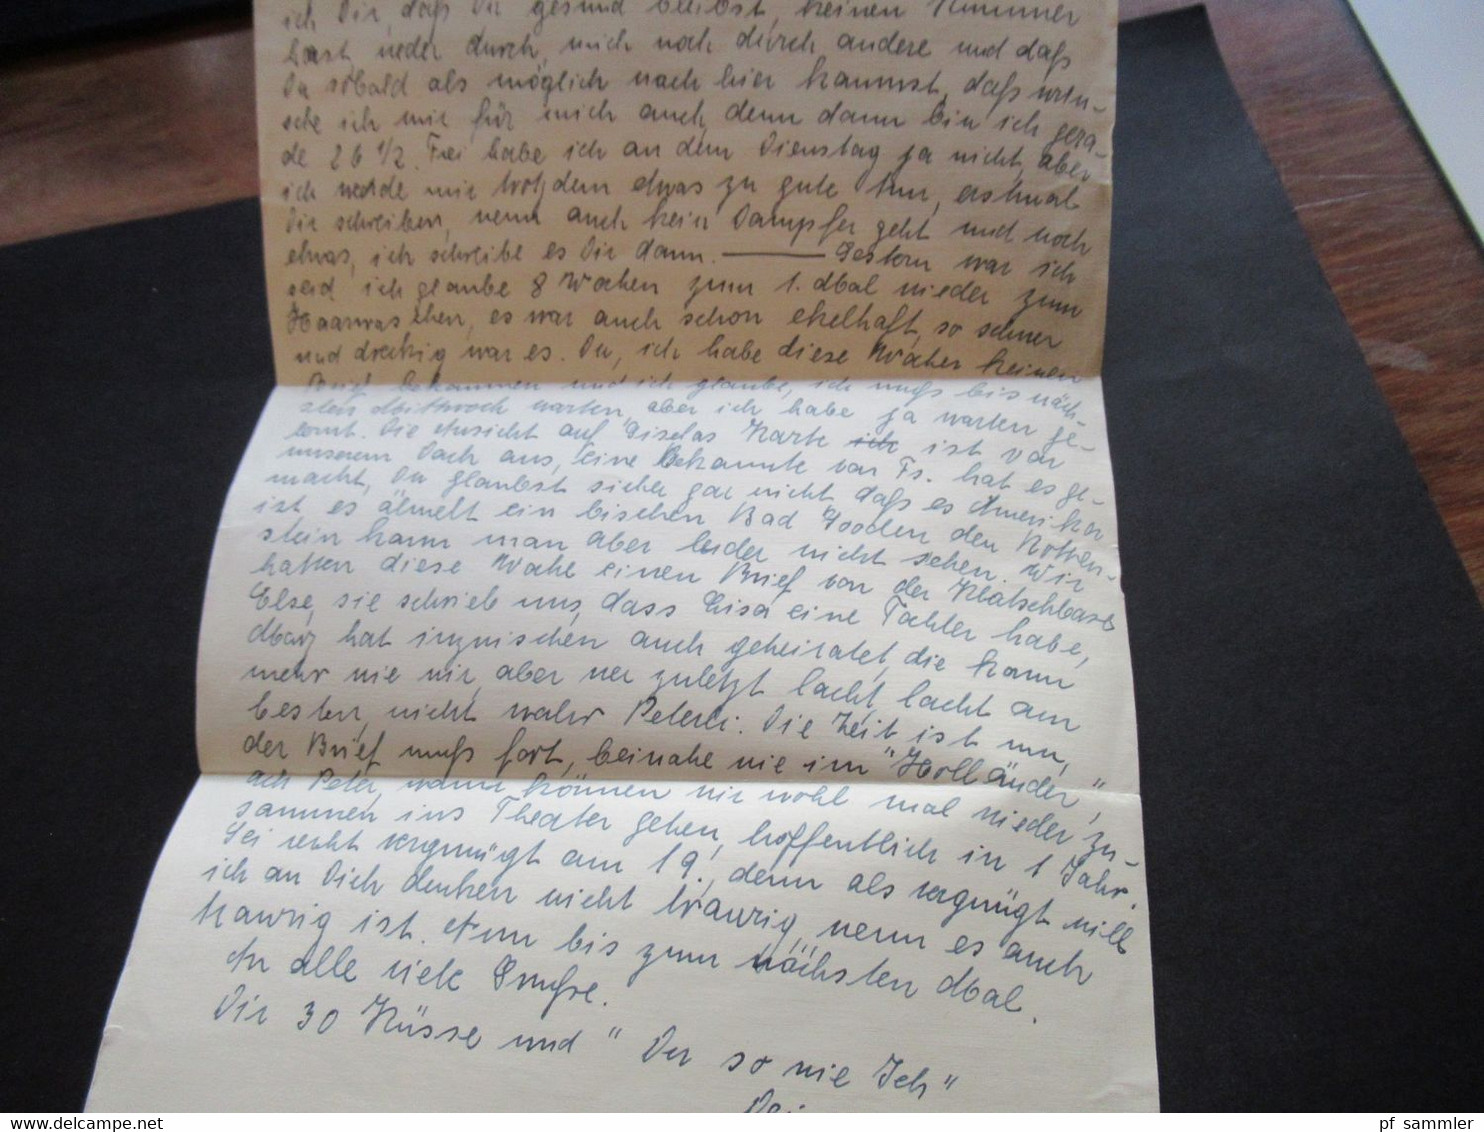 ich Dir, daß Du gesund bleibst, keinen Kummer
hast, weder durch mich noch durch andere und daß
Du sobald als möglich nach hier kommst, daß wün-
sche ich mir für mich auch, denn dann bin ich gera-
de 26 1/2. Frei habe ich an dem Dienstag ja nicht, aber
ich werde mir trotzdem etwas zu gute tun, erstmal
Dir schreiben, wenn auch kein Dampfer geht und noch
etwas, ich schreibe es Dir dann. — Gestern war ich
seid ich glaube 8 Wochen zum 1. Mal wieder zum
Haarwaschen, es war auch schon ekelhaft, so schwer
und dreckig war es. Du, ich habe diese Woche keinen
Brief bekommen und ich glaube, ich muß bis näch-
sten Mittwoch warten, aber ich habe ja warten ge-
lernt. Die Ansicht auf Giselas Karte ist von
unserem Dach aus, eine Bekannte von Fs. hat es ge-
macht, Du glaubst sicher gar nicht daß es Amerika
ist es ähnelt ein bischen Bad Gooden den Rothen-
stein kann man aber leider nicht sehen. Wir
hatten diese Woche einen Brief von der Klatschbase
Else, sie schrieb uns, dass Lisa eine Tochter habe,
Marg hat inzwischen auch geheiratet, die kann
mehr wie wir, aber wer zuletzt lacht, lacht am
besten, nicht wahr Peterli. Die Zeit ist um,
der Brief muß fort, beinahe wie im "Holländer,"
ach Peter, wann können wir wohl mal wieder zu-
sammen ins Theater gehen, hoffentlich in 1 Jahr.
Sei recht vergnügt am 19., denn als vergnügt will
ich an Dich denken nicht traurig, wenn es auch
traurig ist. Nun bis zum nächsten Mal.
An alle viele Grüße.
Dir 30 Küsse und "Du so wie Ich"
pf sammler